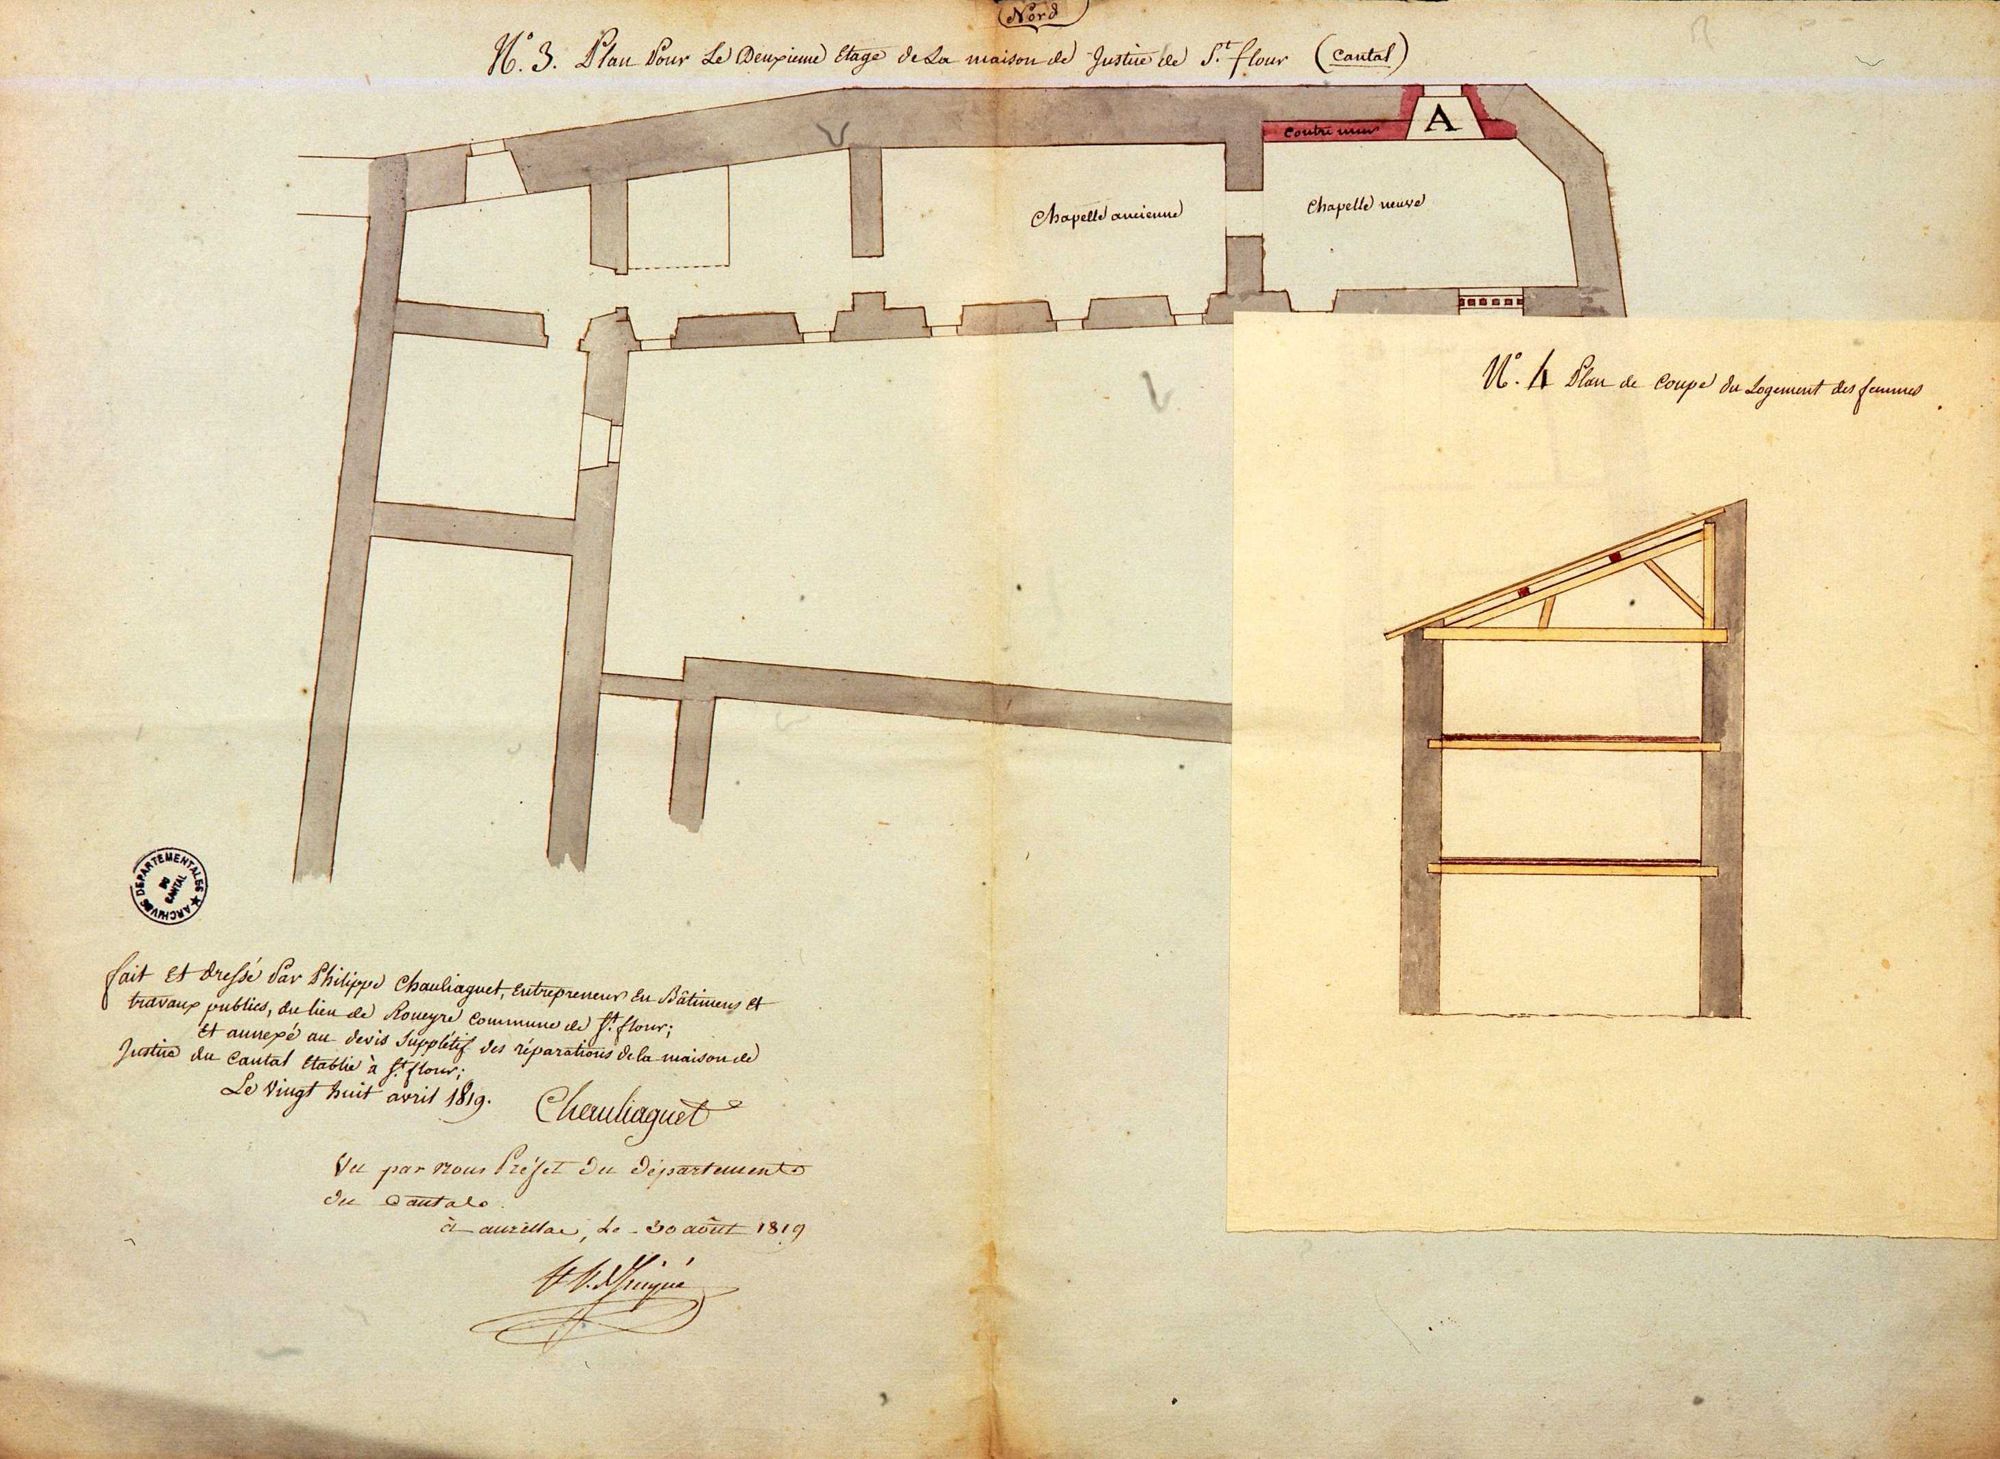 Nord
N.º 3. Plan Pour Le Deuxieme Etage de La maison de Justice de S.t flour (Cantal)
contre mur
A
Chapelle ancienne
Chapelle neuve
N.º 4 Plan de Coupe du Logement des femmes
ARCHIVES DEPARTEMENTALES
DU
CANTAL
fait Et dressé Par Philippe Chauliaguet, Entrepreneur En Bâtimens Et
travaux publics, du lieu de Roueyre Commune de S.t flour;
Et annexé au devis Supplétif des réparations de la maison de
Justice du Cantal Etablie à S.t flour;
Le Vingt huit avril 1819.
Chauliaguet
Vu par nous Préfet du département
du Cantal
à aurillac, Le 30 août 1819